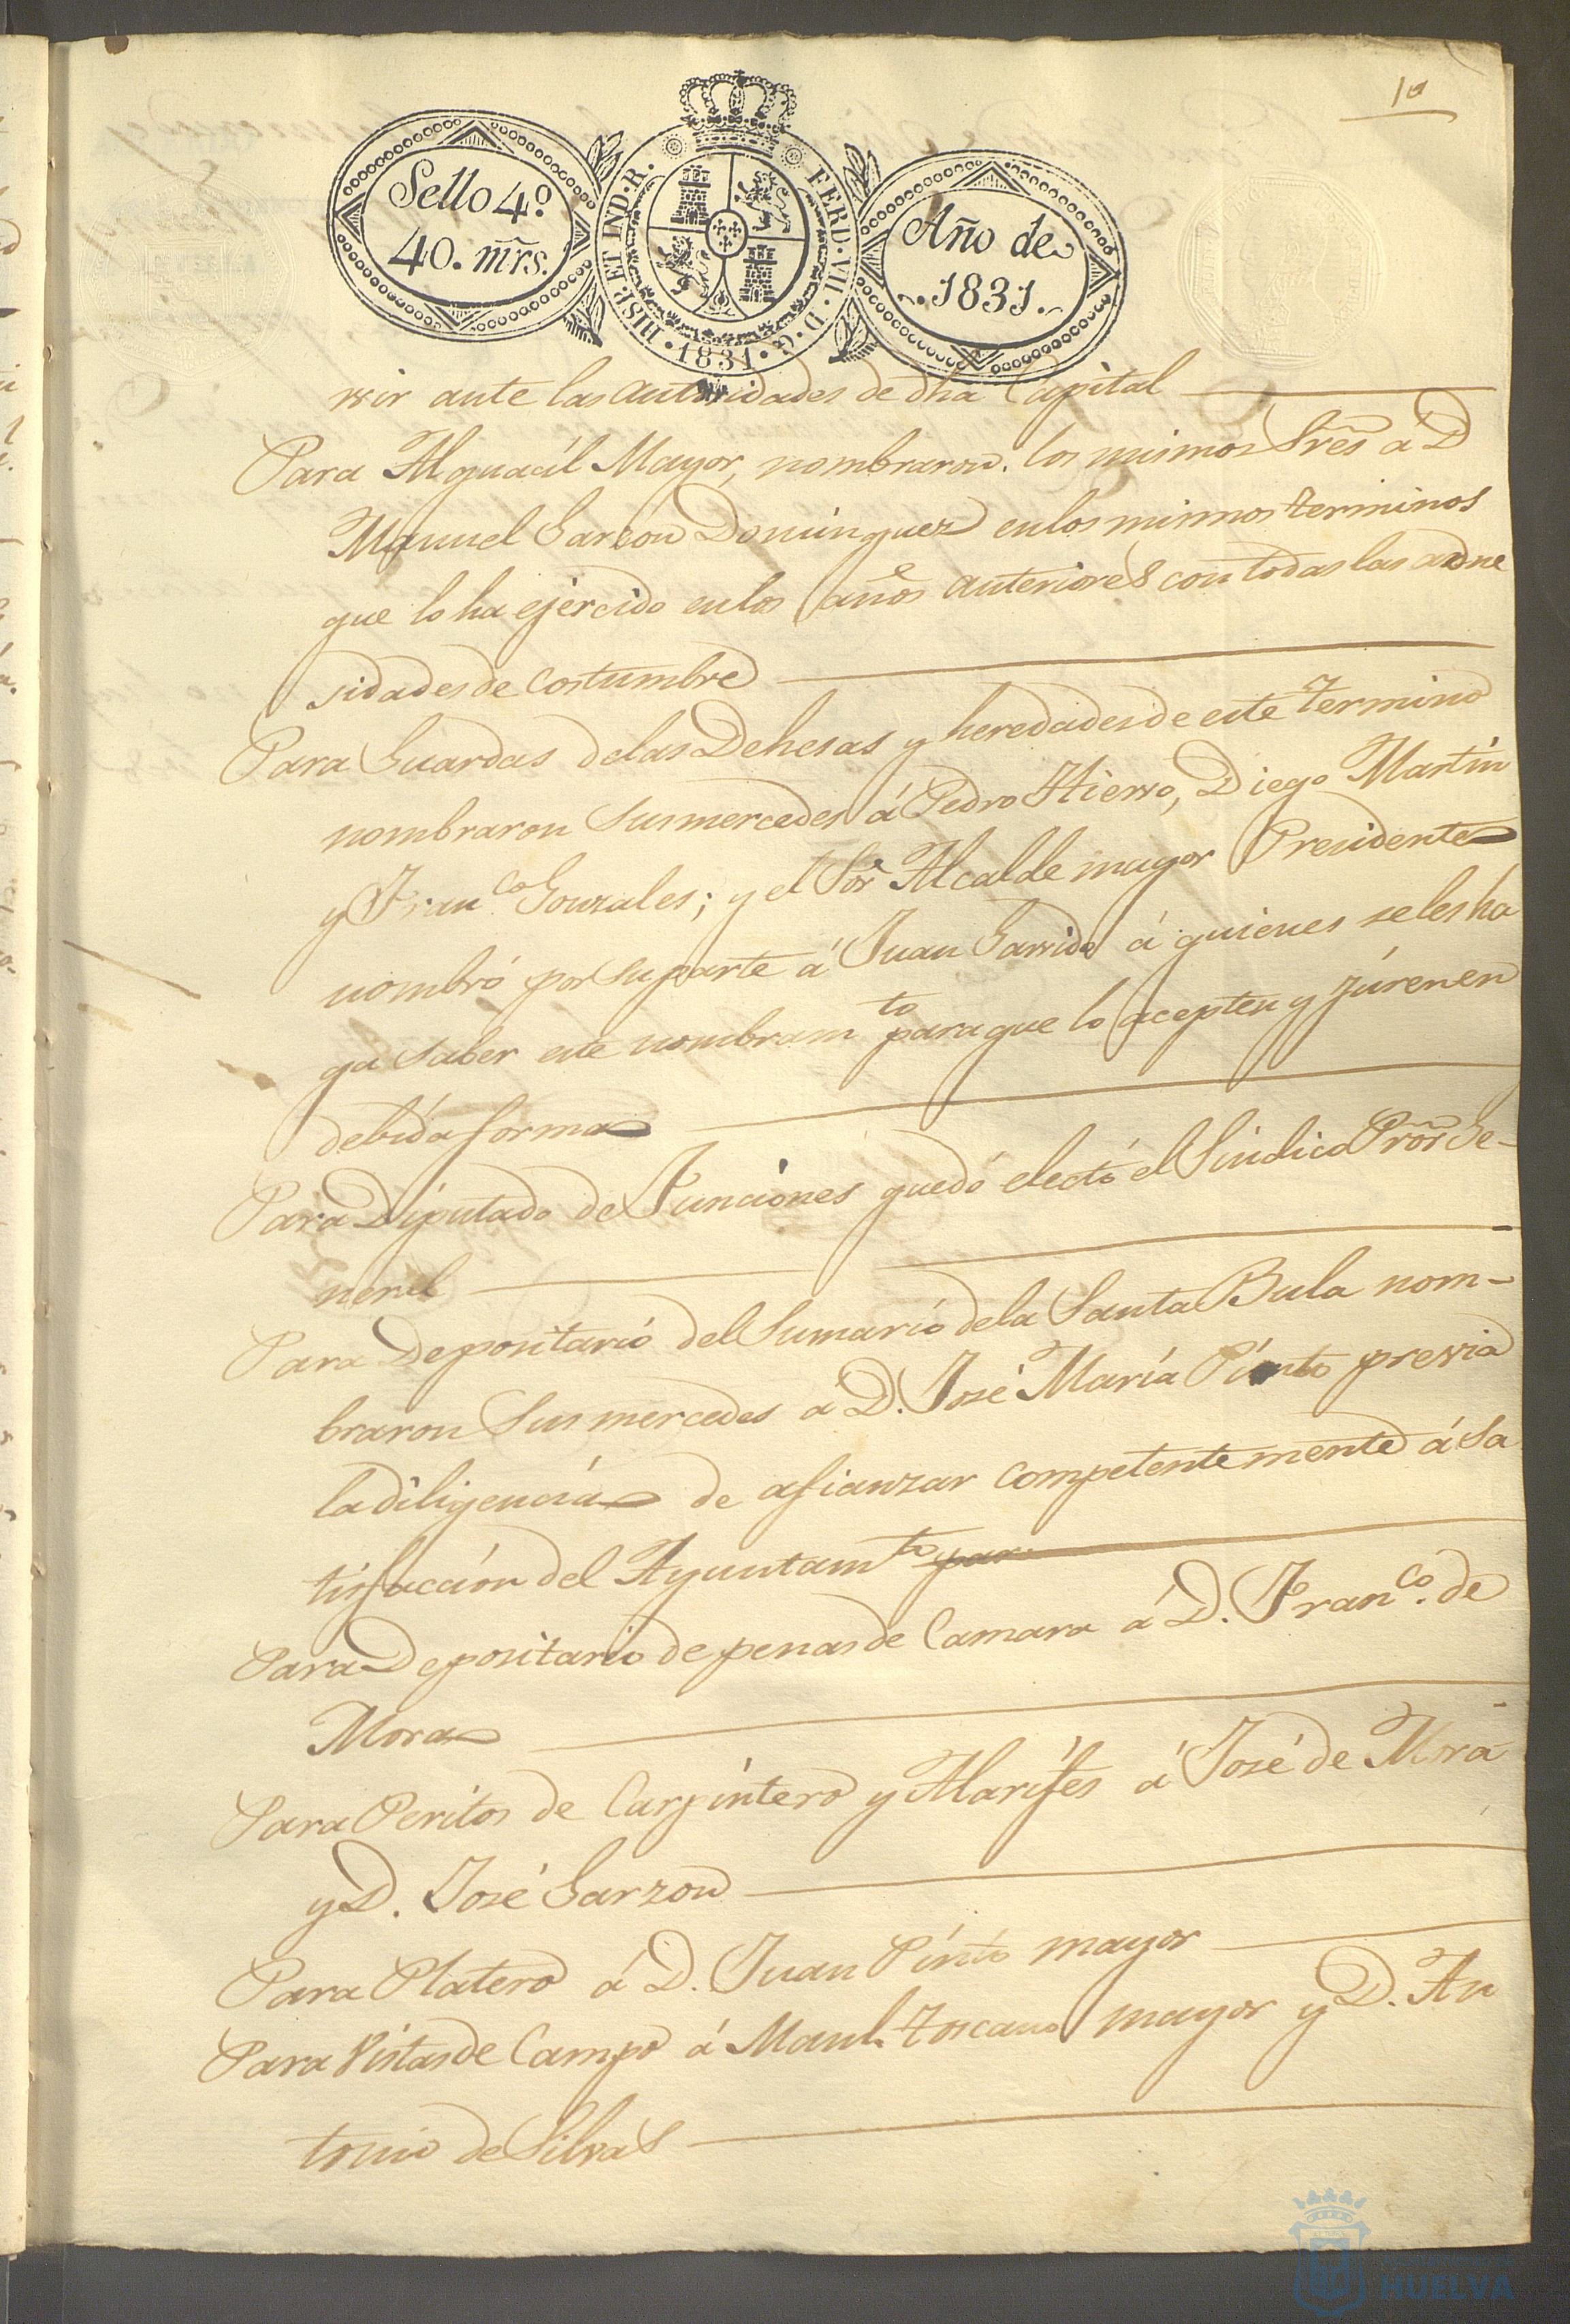 10
Sello 4º
40. mrs.
HISP. ET IND. R. FERD. VII. D. G. 1831.
Año de
1831.
rrir ante las autoridades de dha Capital
Para Alguacíl Mayor, nombraron. los mismos Sres á D
Manuel Garzon Dominguez en los mismos terminos
que lo ha ejercido en los años anteriores con todas las adne
sidades de costumbre
Para Guardas de las Dehesas y heredades de este termino
nombraron Sus mercedes á Pedro Hierro, Diego Martin
y Franco. Gonzales; y el Sor Alcalde mayor Presidente
nombró por su parte á Juan Garrido á quienes se les ha
ga saber este nombramto para que lo acepten y júren en
debida forma
Para Diputado de Funciones quedó electo el Sindico Pror Ge-
neral
Para Depositario del Sumario de la Santa Bula nom-
braron Sus mercedes á D. José María Pinto previa
la diligencia de afianzar competentemente á sa
tisfaccion del Ayuntamto par
Para Depositario de penas de Camara á D. Franco. de
Mora
Para Peritos de Carpintero y Alarifes á José de Mora
y D. José Garzon
Para Platero á D. Juan Pinto mayor
Para Vistas de Campo á Manl. Toscano mayor y D. An
tonio de Silva
HUELVA